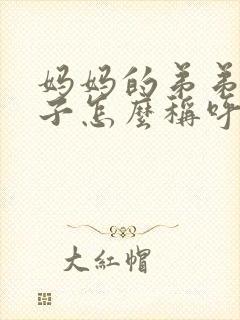 妈妈的弟弟
子怎麼稱呼
大紅帽